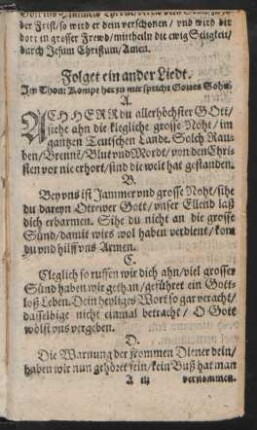 der Frist/ so wird er dein verschonen / vnd wird dir
dort in grosser Frewd/ mittheiln die ewig Seligkeit/
durch Jesum Christum/ Amen.
Folget ein ander Liedt.
Im Thon: Kompt her zu mir spricht Gottes Sohn.
A.
ACH HERR du allerhöchster GOtt/
siehe ahn die klegliche grosse Noht/ im
gantzen Teutschen Lande. Solch Rau-
ben/ Brenne/ Blut vnd Mordt/ von den Chri-
sten vor nie erhort/ sind die welt hat gestanden.
B.
Bey vns ist Jammer vnd grosse Noht/ sihe
du dareyn O trewer Gott/ vnser Ellend laß
dich erbarmen. Sihe du nicht an die grosse
Sünd/ damit wirs wol haben verdient/ kom
du vnd hilff vns Armen.
C.
Cleglich so ruffen wir dich ahn/ viel grosser
Sünd haben wir gethan/ geführet ein Gott-
loß Leben. Dein heyliges Wort so gar veracht/
dasselbige nicht einmal betracht/ O Gott
wölst vns vergeben.
D.
Die Warnung der frommen Diener dein/
haben wir nun gehöret fein/ kein Buß hat man
A iij vernommen.